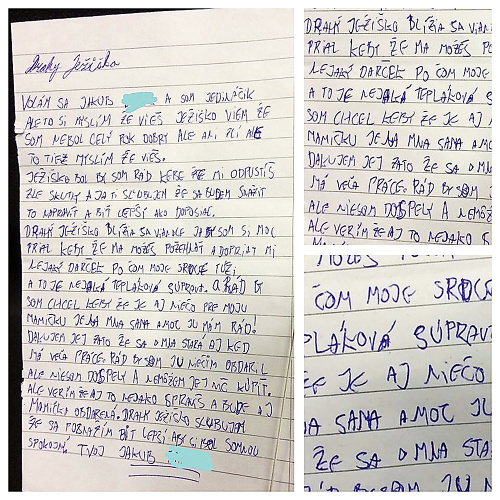 Drahý Ježiško
VOLÁM SA JAKUB A SOM JEDINÁČIK
ALE TO SI MYSLÍM ŽE VIEŠ JEŽIŠKO VIEM ŽE
SOM NEBOL CELÝ ROK DOBRÝ ALE ANI ZLÍ ALE
TO TIEŽ MYSLÍM ŽE VIEŠ.
JEŽIŠKO BOL BY SOM RÁD KEBY ŽE MI ODPUSTÍŠ
ZLE SKUTKY A JA TI SĽUBUJEM ŽE SA BUDEM SNAŽIT
TO NAPRAVIT A BIŤ LEPŠÍ AKO DOPOSIAĽ.
DRAHÝ JEŽIŠKO BLÍŽIA SA VIANOCE JA BY SOM SI MOC
PRIAL KEBY ŽE MA MOŽEŠ POŽEHNAŤ A DOPRIAŤ MI
NEJAKÝ DARČEK PO ČOM MOJE SRDCE TÚŽI
A TO JE NEJAKÁ TEPLÁKOVÁ SÚPRAVA. A RÁD BY
SOM CHCEL KEBY ŽE JE AJ NIEČO PRE MOJU
MAMIČKU JE NA MNA SAMA A MOC JU MÁM RÁD!
ĎAKUJEM JEJ ZATO ŽE SA O MNA STARÁ AJ KEĎ
MÁ VEĽA PRÁCE. RÁD BY SOM JU NIEČIM OBDARIL
ALE NIESOM DOSPELÝ A NEMÔŽEM JEJ NIČ KÚPIT.
ALE VERÍM ŽE AJ TO NEJAKO SPRAVÍŠ A BUDE AJ
MAMIČKA OBDARENÁ. DRAHÝ JEŽIŠKO SĽUBUJEM
ŽE SA POSNAŽÍM BÝT LEPŠÍ ABY SI BOL SOMNOU
SPOKOJNÍ. TVOJ JAKUB
DRAHÝ JEŽIŠKO BLÍŽIA SA VIAN
PRIAL KEBY ŽE MA MOŽEŠ PO
NEJAKÝ DARČEK PO ČOM MOJE
A TO JE NEJAKÁ TEPLÁKOVÁ S
SOM CHCEL KEBY ŽE JE AJ N
MAMIČKU JE NA MNA SAMA A MOC
ĎAKUJEM JEJ ZATO ŽE SA O MN
MÁ VEĽA PRÁCE. RÁD BY SOM
ALE NIESOM DOSPELÝ A NEMÔŽ
ALE VERÍM ŽE AJ TO NEJAKO S
ČOM MOJE SRDCE
PLÁKOVÁ SÚPRAV
ŽE JE AJ NIEČO
A SAMA A MOC JU
ŽE SA O MNA STA